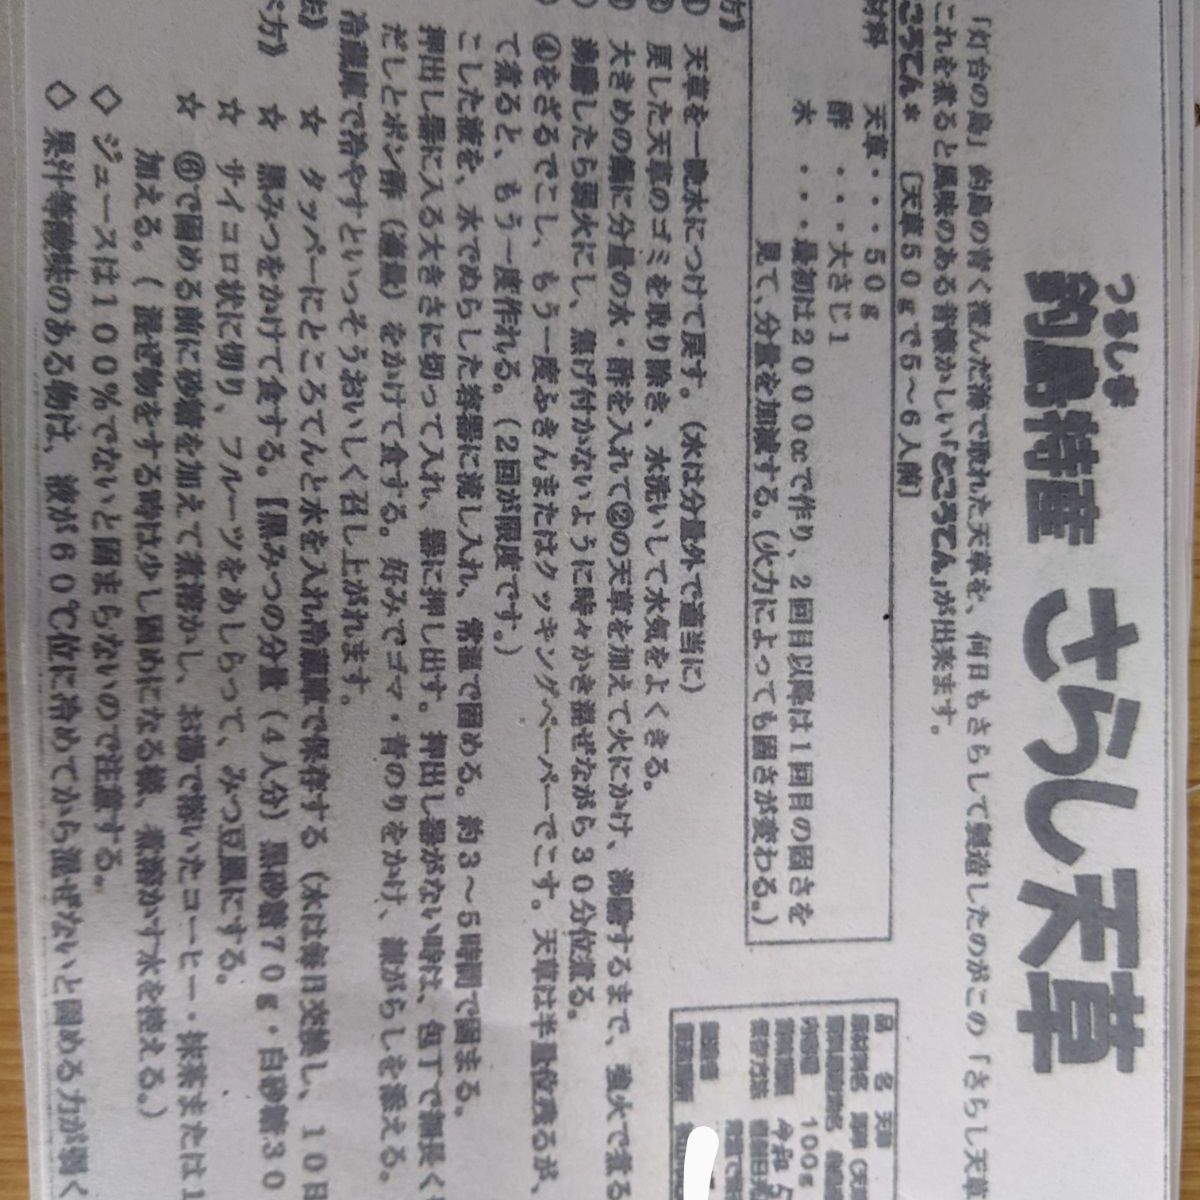 つるしま
釣島特産 さらし天草
「灯台の島」釣島の青く澄んだ海で取れた天草を、何日もさらして製造したのがこの「さらし天草
これを煮ると風味のある昔懐かしい「ところてん」が出来ます。
ころてん* [天草50gで5~6人前]
材料 天草・・・50g
酢 ・・・大さじ1
水 ・・・最初は2000ccで作り、2回目以降は1回目の固さを
見て、分量を加減する。(火力によっても固さが変わる。)
品 名 天草
内容量 100g
令和5
保存方法
方》
① 天草を一晩水につけて戻す。(水は分量外で適当に)
② 戻した天草のゴミを取り除き、水洗いして水気をよくきる。
大きめの鍋に分量の水・酢を入れて②の天草を加えて火にかけ、沸騰するまで、強火で煮る
沸騰したら弱火にし、焦げ付かないように時々かき混ぜながら30分位煮る。
④をざるでこし、もう一度ふきんまたはクッキングペーパーでこす。天草は半量位残るが、
て煮ると、もう一度作れる。(2回が限度です。)
こした液を、水でぬらした容器に流し入れ、常温で固める。約3~5時間で固まる。
押出し器に入る大きさに切って入れ、器に押し出す。押出し器がない時は、包丁で細長く
だしとポン酢(適量)をかけて食する。好みでゴマ・青のりをかけ、練がらしを添える。
冷蔵庫で冷やすといっそうおいしく召し上がれます。
法》
☆ タッパーにところてんと水を入れ冷蔵庫で保存する(水は毎日交換し、10日
べ方》
☆ 黒みつをかけて食する。[黒みつの分量(4人分)黒砂糖70g・白砂糖30
☆ サイコロ状に切り、フルーツをあしらって、みつ豆風にする。
☆ ⑥で固める前に砂糖を加えて煮溶かし、お湯で溶いたコーヒー・抹茶または1
加える。(混ぜ物をする時は少し固めになる様、煮溶かす水を控える。)
◇ ジュースは100%でないと固まらないので注意する。
◇ 果汁等酸味のある物は、液が60℃位に冷めてから混ぜないと固める力が弱く